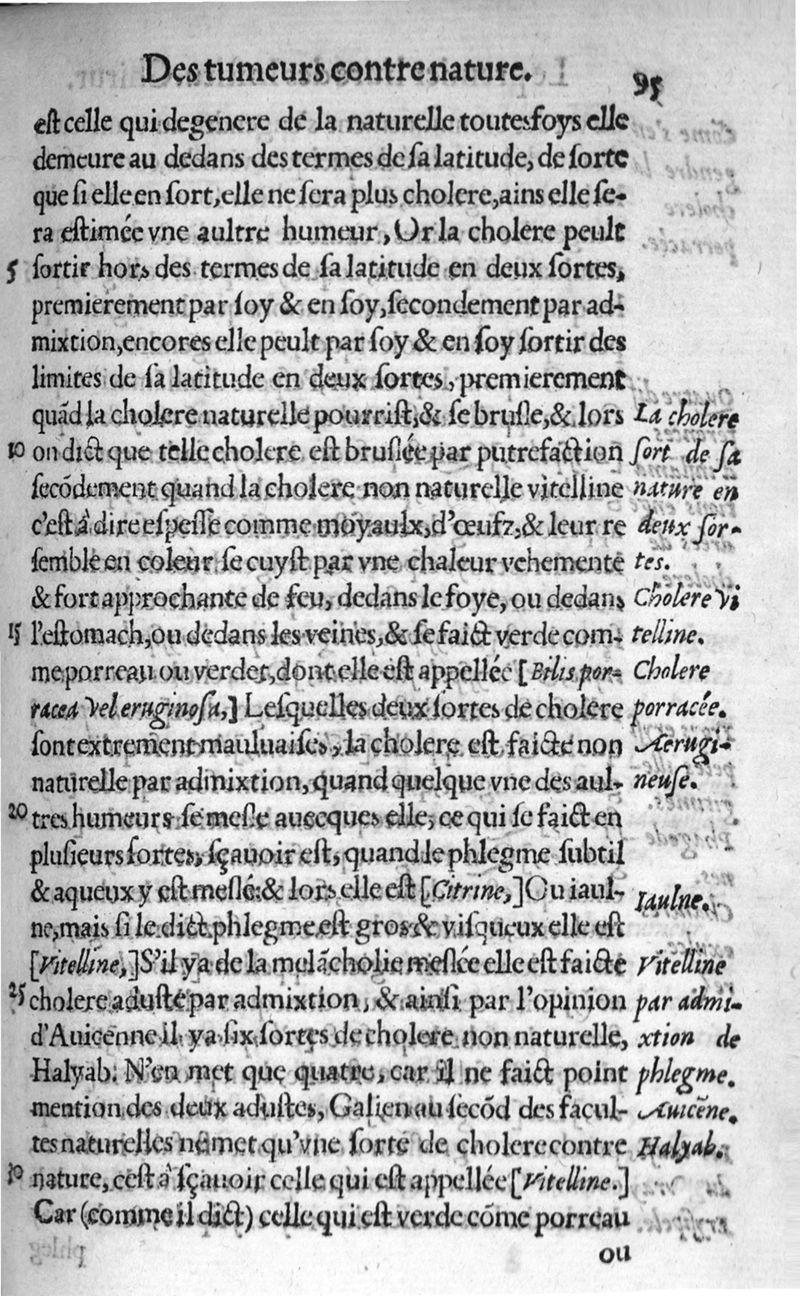 Des tumeurs contre nature. 95
est celle qui degenere de la naturelle toutesfoys elle
demeure au dedans des termes de sa latitude, de sorte
que si elle en sort, elle ne sera plus cholere, ains elle se-
ra estimée vne aultre humeur, Or la cholere peult
5 sortir hors des termes de sa latitude en deux sortes,
premierement par soy & en soy, secondement par ad-
mixtion, encores elle peult par soy & en soy sortir des
limites de sa latitude en deux sortes, premierement
quãd la cholere naturelle pourrist, & se brusle, & lors
10 on dict que telle cholere est bruslée par putrefaction
secõdement quand la cholere non naturelle vitelline
c'est à dire espesse comme moyaulx, d'œufz, & leur re
semble en coleur se cuyst par vne chaleur vehemente
& fort approchante de feu, dedans le foye, ou dedans
15 l'estomach, ou dedans les veines, & se faict verde com-
me porreau ou verdet, dont elle est appellée [Bilis por-
racea vel eruginosa,] Lesquelles deux sortes de cholere
sont extrement mauluaises, la cholere est faicte non
naturelle par admixtion, quand quelque vne des aul-
20 tres humeurs se mesle auecques elle, ce qui se faict en
plusieurs sortes, sçauoir est, quand le phlegme subtil
& aqueux y est meslé: & lors elle est [Citrine,] Ou iaul-
ne, mais si le dict phlegme est gros & visqueux elle est
[Vitelline,] S'il y a de la melãcholie meslée elle est faicte
25 cholere aduste par admixtion, & ainsi par l'opinion
d'Auicenne il y a six sortes de cholere non naturelle,
Halyab. N'en met que quatre, car il ne faict point
mention des deux adustes, Galien au secõd des facul-
tes naturelles n'émet qu'vne sorte de cholere contre
30 nature, cest à sçauoir celle qui est appellée [Vitelline.]
Car (comme il dict) celle qui est verde cõme porreau
ou
La cholere
sort de sa
nature en
deux sor-
tes.
Cholere vi
telline.
Cholere
porracée.
Aerugi-
neuse.
Iaulne.
Vitelline
par admi-
xtion de
phlegme.
Auicẽne.
Halyab.